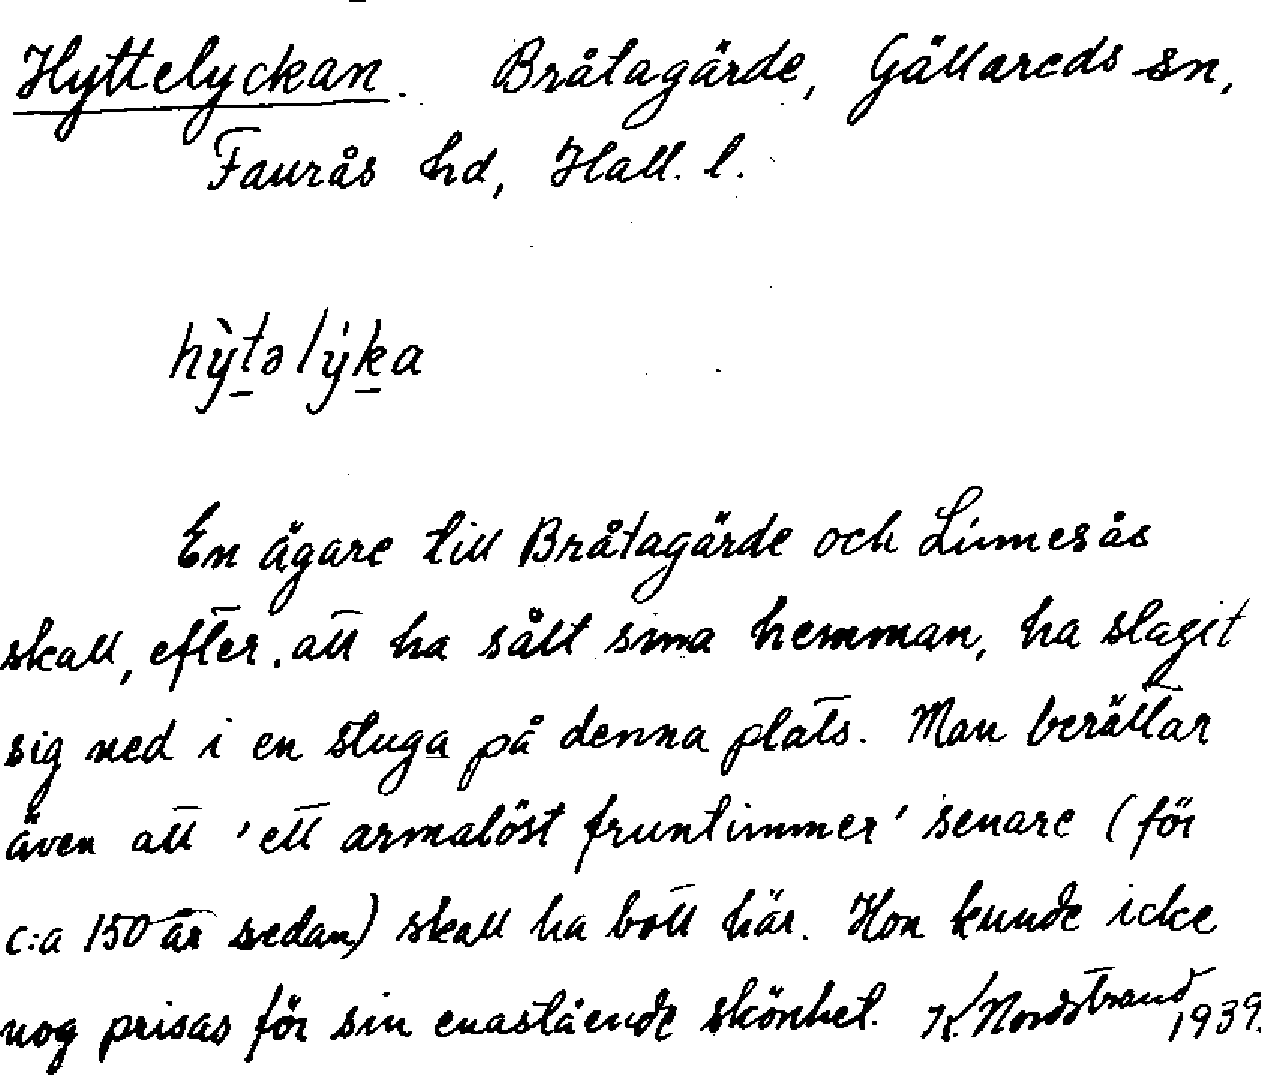 Hyttelyckan. Bråtagärde, Gällareds sn,
Faurås hd, Hall. l.
hỳt̲əlýk̲a
En ägare till Bråtagärde och Linnesås
skall, efter att ha sålt sina hemman, ha slagit
sig ned i en stuga på denna plats. Man berättar
även att 'ett armalöst fruntimmer' senare (för
c:a 150 år sedan) skall ha bott här. Hon kunde icke
nog prisas för sin enastående skönhet. K. Nordstrand 1939.